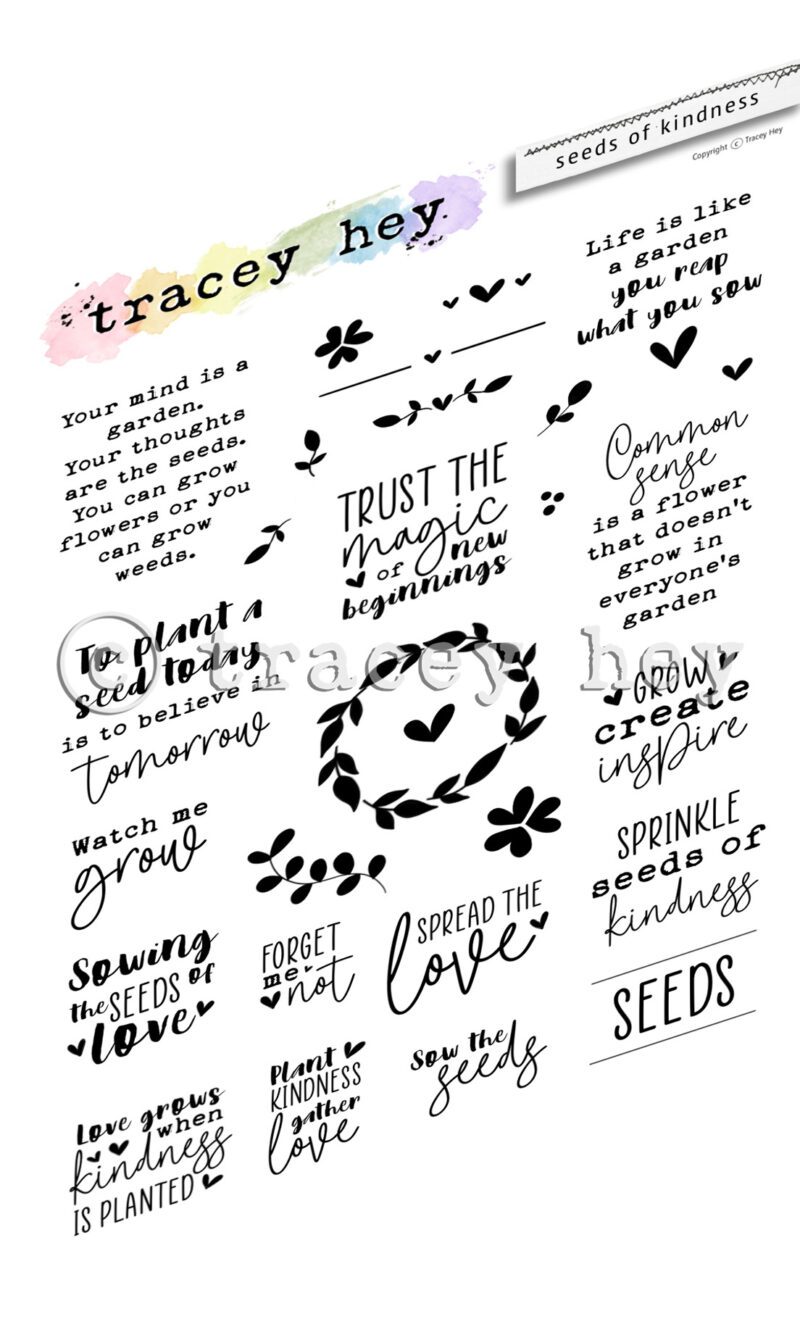 seeds of kindness
Copyright © Tracey Hey
tracey hey
Life is like
a garden
you reap
what you sow
Your mind is a
garden.
Your thoughts
are the seeds.
You can grow
flowers or you
can grow
weeds.
TRUST THE
magic
of new
beginnings
Common
sense
is a flower
that doesn't
grow in
everyone's
garden
© tracey hey
To plant a
seed today
is to believe in
tomorrow
GROW
create
inspire
Watch me
grow
SPRINKLE
seeds of
kindness
Sowing
the SEEDS of
love
FORGET
me not
SPREAD THE
love
SEEDS
Love grows
when
kindness
IS PLANTED
Plant
KINDNESS
gather
love
Sow the
seeds